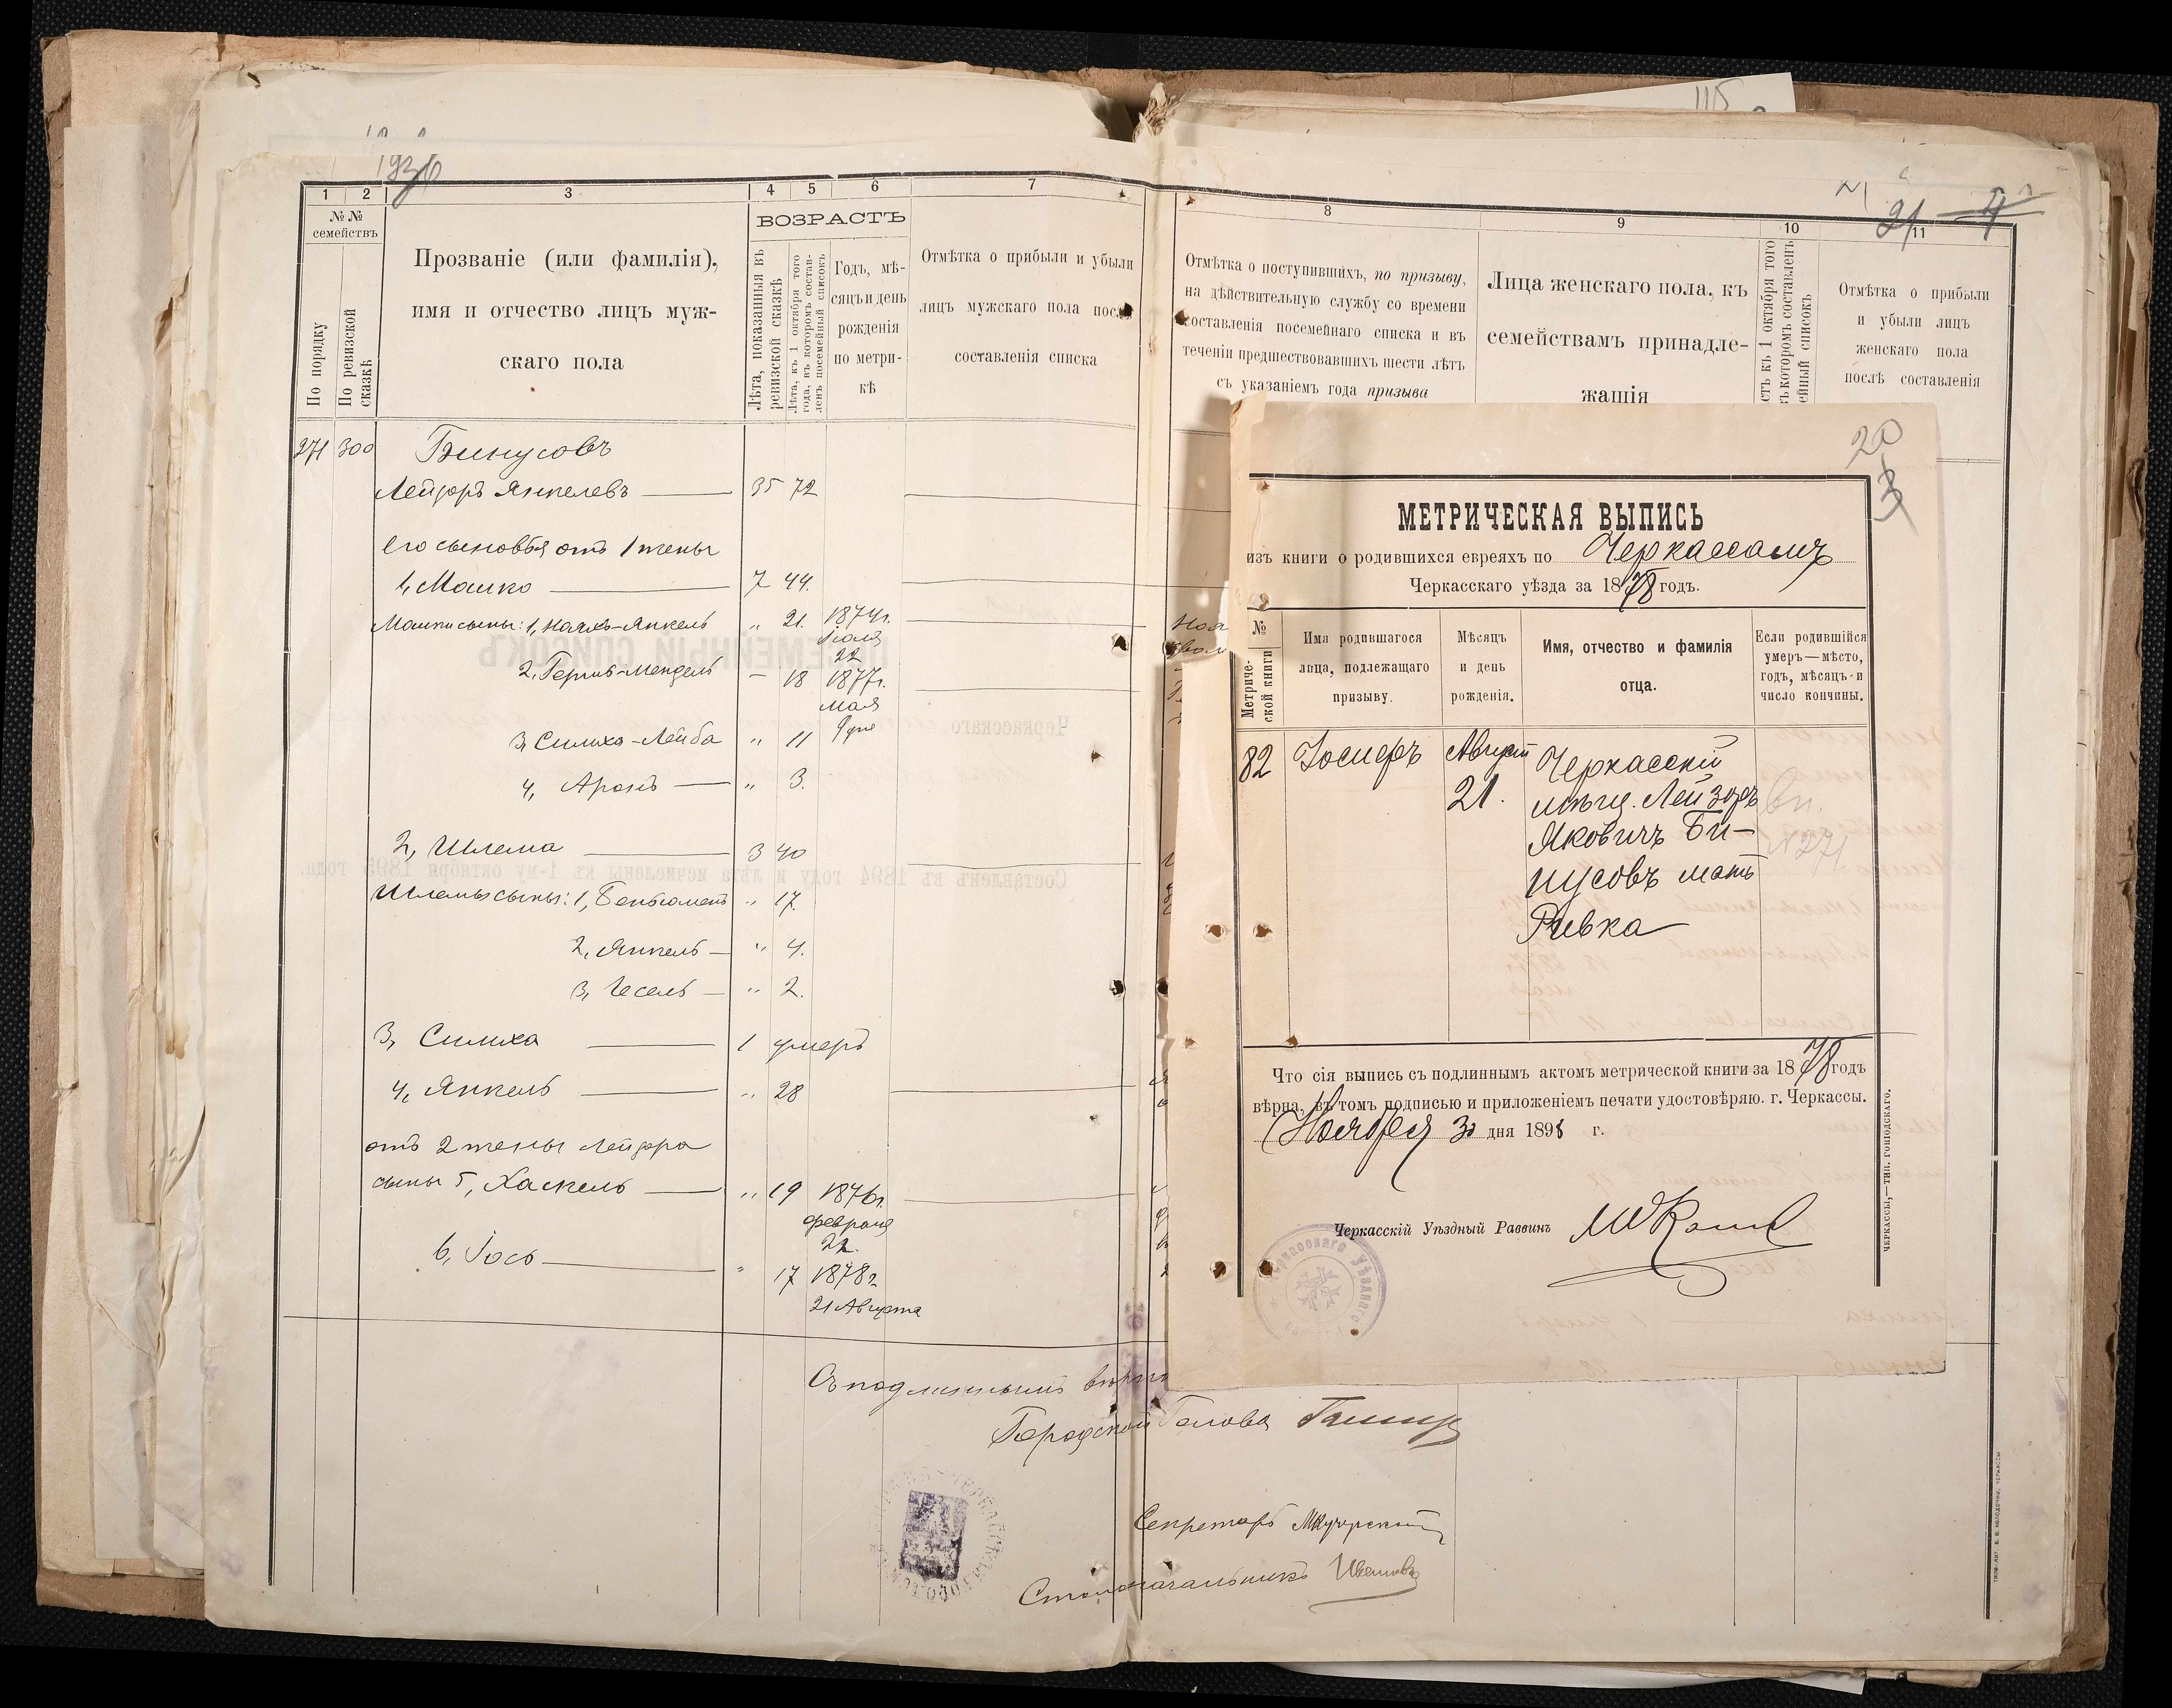 115
1936
1 2 3 4 5 6 7
№ № семействъ
По порядку
По ревизской сказкѣ
Прозваніе (или фамилія),
имя и отчество лицъ муж-
скаго пола
ВОЗРАСТЪ
Лѣта, показанныя въ
ревизской сказкѣ
Лѣта, къ 1 октября того
года, въ которомъ состав-
ленъ посемейный списокъ
Годъ, мѣ-
сяцъ и день
рожденія
по метри-
кѣ
Отмѣтка о прибыли и убыли
лицъ мужскаго пола послѣ
составленія списка
271 300 Бинусовъ
Лейзоръ Янкелевъ 35 72
его сыновья отъ 1 жены
1, Мошко 7 44.
Мошки сыны: 1, Янкель „ 21. 1874г.
Іюля
22
2, Гершь-Мендель – 18 1877г.
мая
9 дня
3, Симха-Лейба „ 11
4, Аронъ „ 3.
2, Шлема 3 40
Шлемы сыны: 1, Беньюменъ „ 17.
2, Янкель „ 4.
3, Іесель „ 2.
3, Симха 1 умеръ
4, Янкель „ 28
отъ 2 жены Лейзора
сыны 5, Хаскель „ 19 1876г.
февраля
22.
6, Іось „ 17 1878г.
21 Августа
Съ подлиннымъ вѣрно
Городской Голова
Секретарь
Столоначальникъ Ивановъ
21 4
8 9 10 11
Отмѣтка о поступившихъ, по призыву,
на дѣйствительную службу со времени
составленія посемейнаго списка и въ
теченіи предшествовавшихъ шести лѣтъ
съ указаніемъ года призыва
Лица женскаго пола, къ
семействамъ принадле-
жащія
Отмѣтка о прибыли
и убыли лицъ
женскаго пола
послѣ составленія
20
3
МЕТРИЧЕСКАЯ ВЫПИСЬ
изъ книги о родившихся евреяхъ по Черкассамъ
Черкасскаго уѣзда за 1878 годъ.
№
Метриче-
ской книги
Имя родившагося
лица, подлежащаго
призыву.
Мѣсяцъ
и день
рожденія.
Имя, отчество и фамилія
отца.
Если родившійся
умеръ—мѣсто,
годъ, мѣсяцъ и
число кончины.
82 Іосифъ Августъ Черкасскій
21. мѣщ. Лейзоръ вп.
Яковичъ Би- №271
нусовъ мать
Ривка
Что сія выпись съ подлиннымъ актомъ метрической книги за 1878 годъ
вѣрна, въ томъ подписью и приложеніемъ печати удостовѣряю. г. Черкассы.
Ноября 30 дня 1898 г.
Черкасскій Уѣздный Раввинъ
ЧЕРКАССЫ,—ТИП. ГОПОДСКАГО.